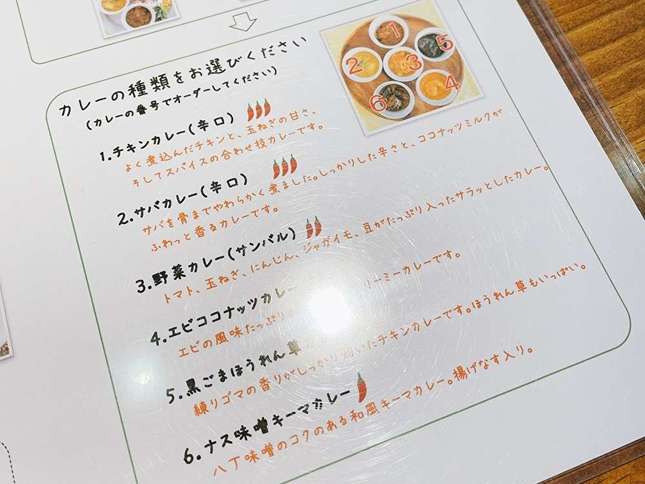 カレーの種類をお選びください
(カレーの番号でオーダーしてください)
1
2
3
5
4
6
1.チキンカレー(辛口)
よく煮込んだチキンと、玉ねぎの甘さ、
そしてスパイスの合わせ技カレーです。
2.サバカレー(辛口)
サバを骨までやわらかく煮ました。しっかりした辛さと、ココナッツミルクが
ふわっと香るカレーです。
3.野菜カレー(サンバル)
トマト、玉ねぎ、にんじん、ジャガイモ、豆がたっぷり入ったサラッとしたカレー。
4.エビココナッツカレー
エビの風味たっぷり リーミーカレーです。
5.黒ごまほうれん草
練りゴマの香りがしっかり いたチキンカレーです。ほうれん草もいっぱい。
6.ナス味噌キーマカレー
八丁味噌のコクのある和風キーマカレー。揚げなす入り。